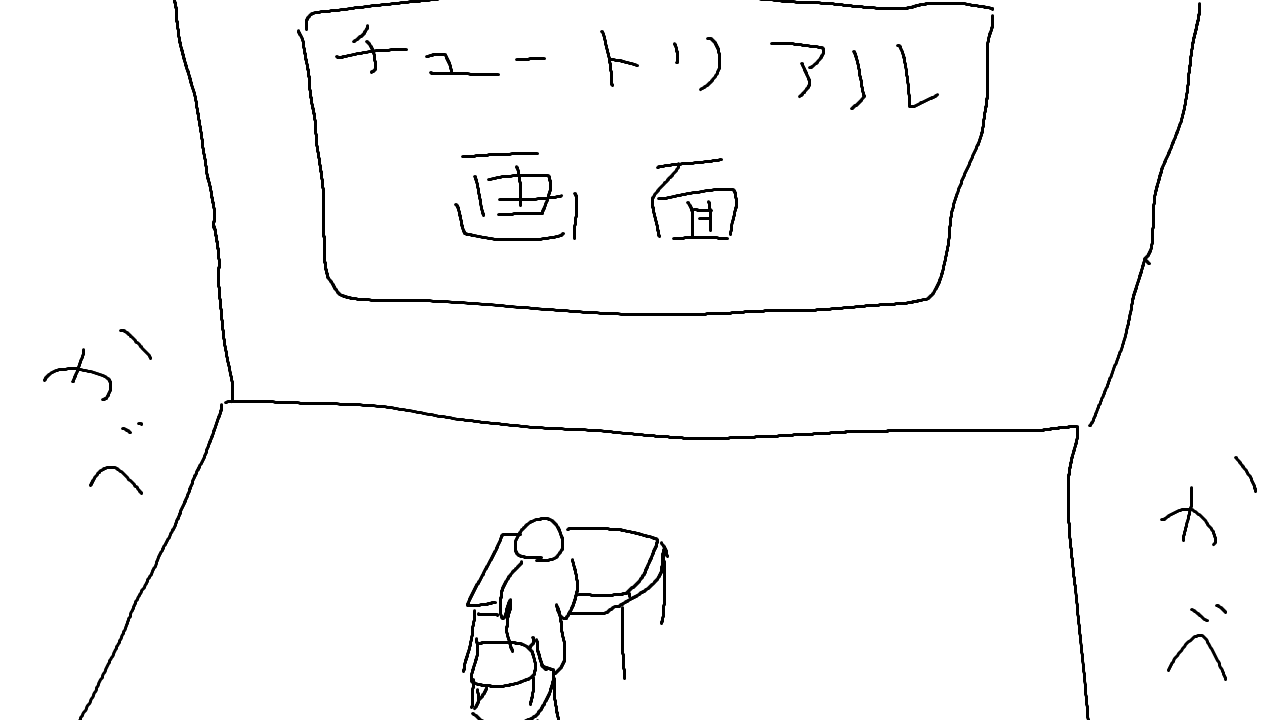 チュートリアル
画面
かべ
かべ